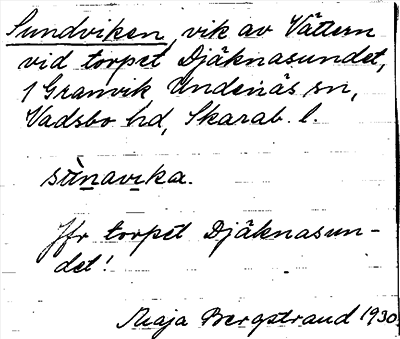 Sundviken, vik av Vättern
vid torpet Djäknasundet,
1 Granvik Undenäs sn,
Vadsbo hd, Skarab. l.
sùnavika.
Jfr torpet Djäknasun-
det!
Maja Bergstrand 1930.